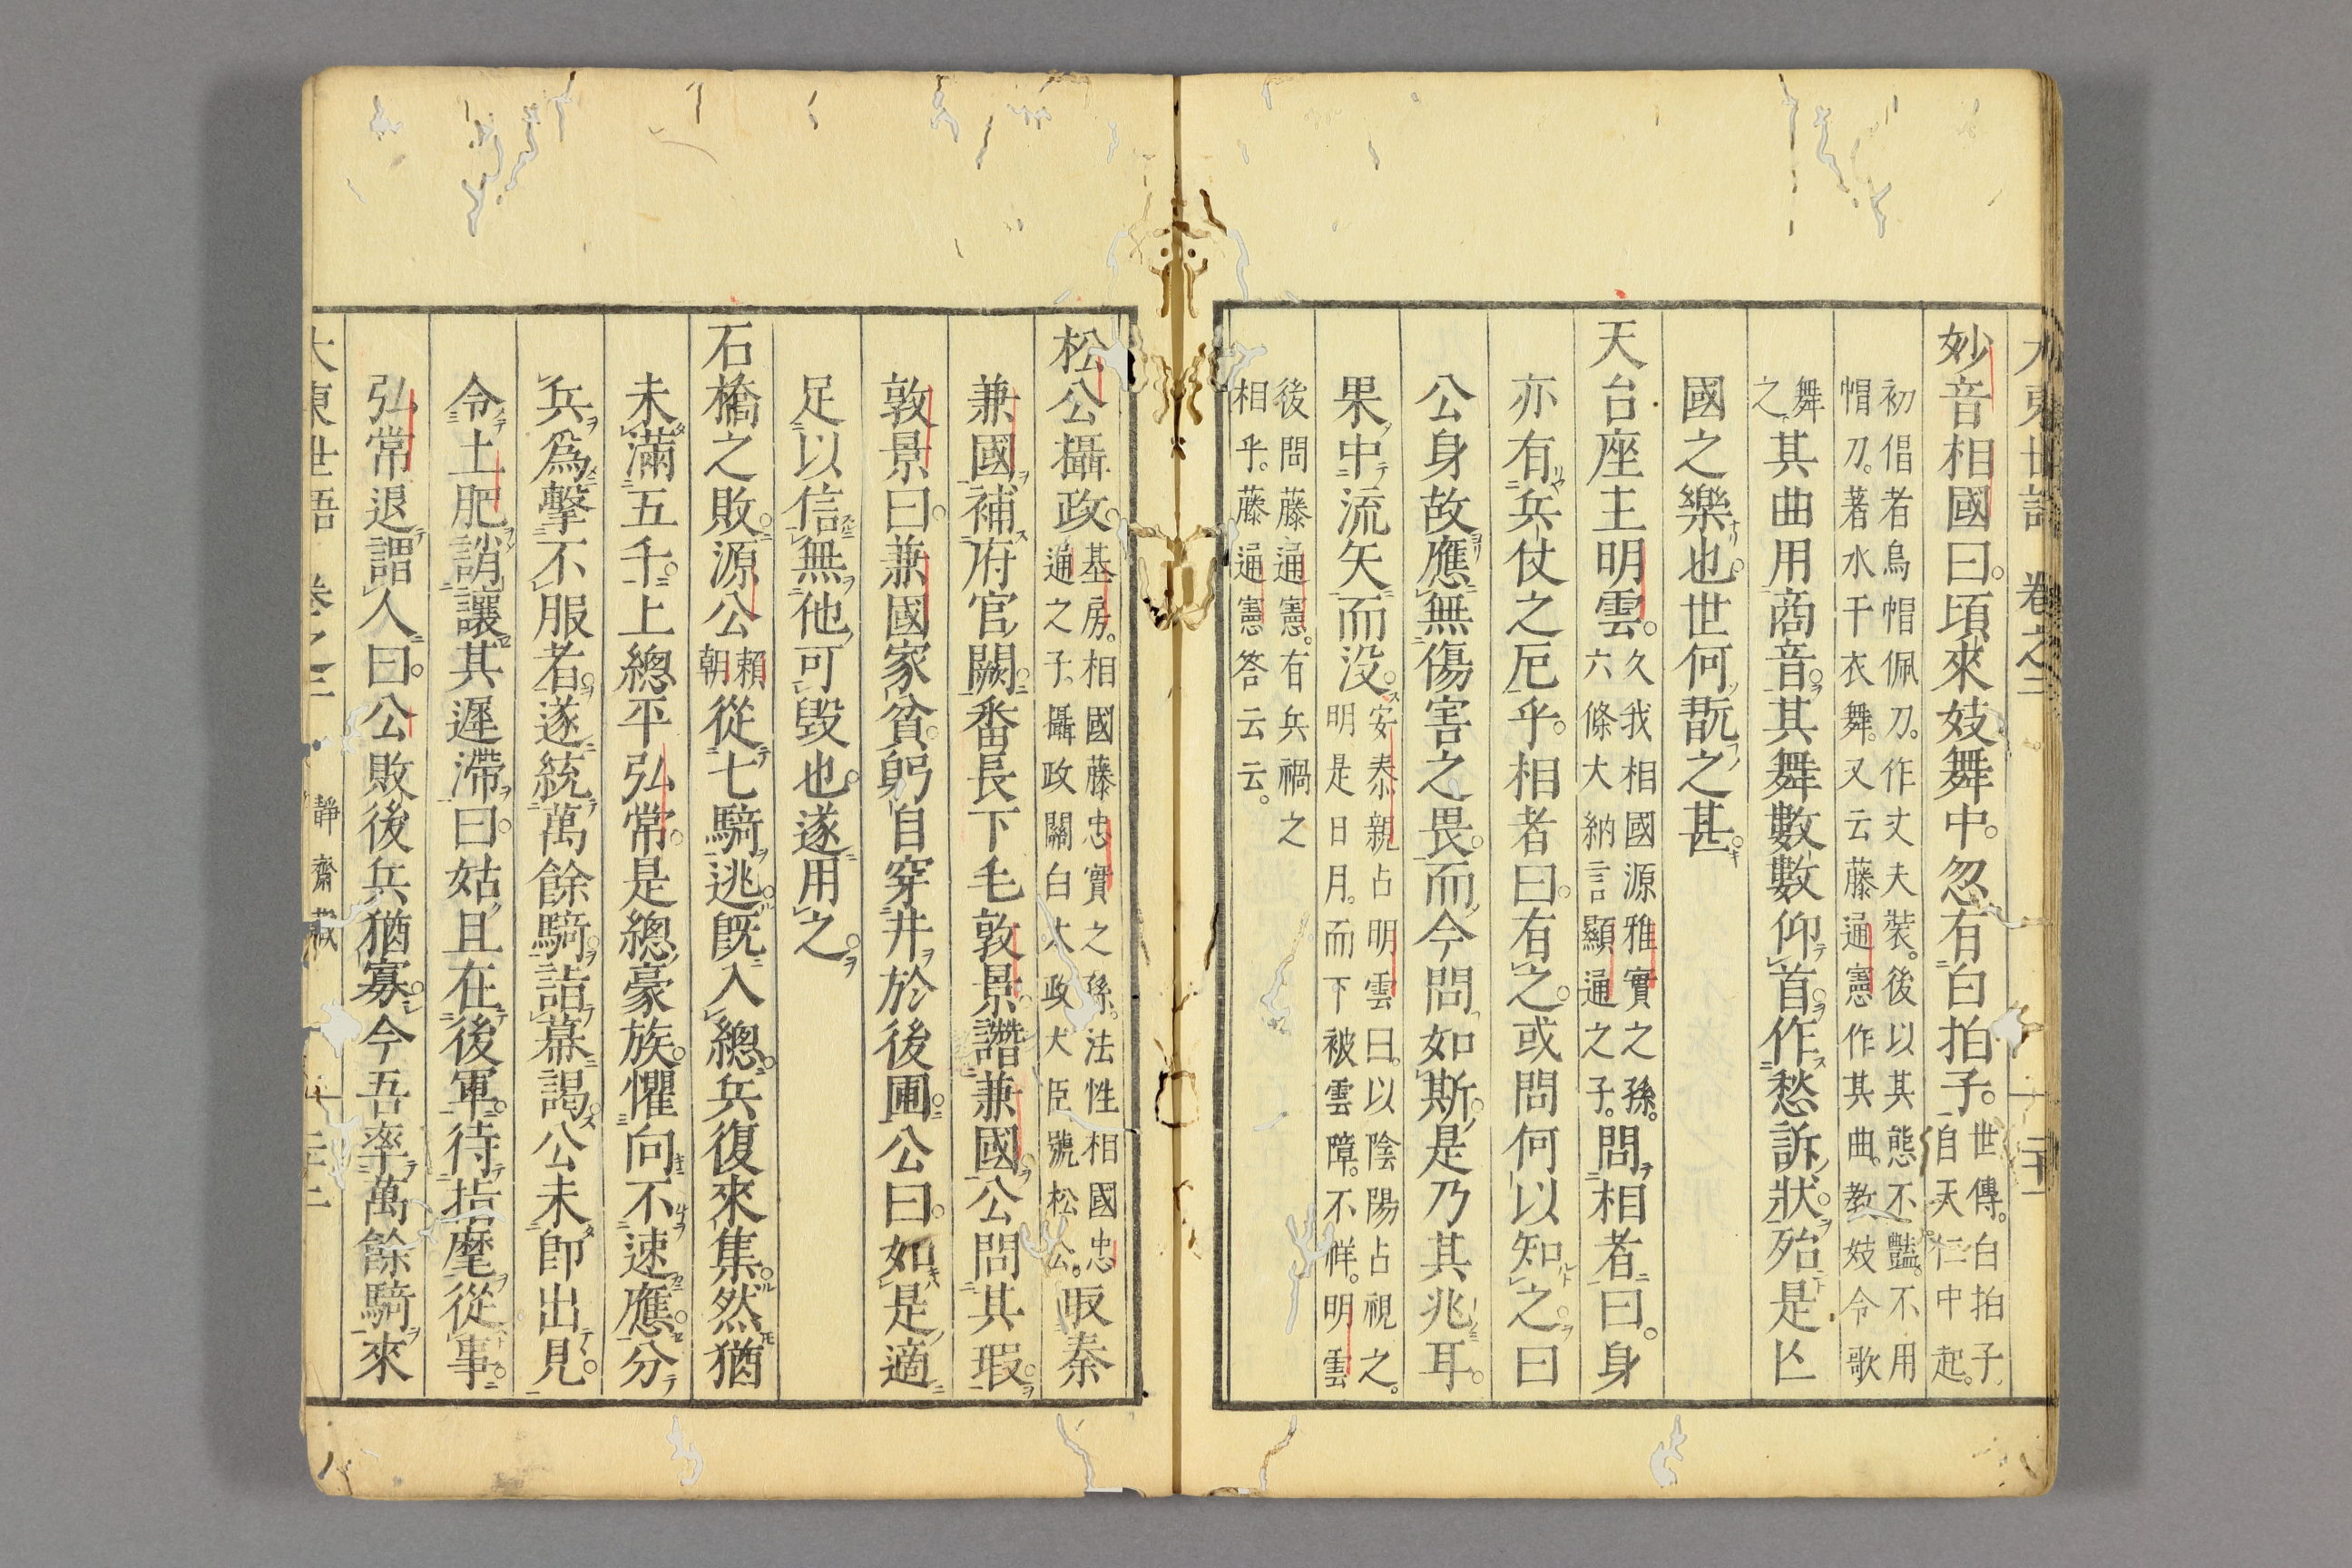 大東世語　卷之二　二十一
妙音相國曰。頃來妓舞中。忽有白拍子。世傳。白拍子自天仁中起。
初倡者烏帽佩刀。作丈夫裝。後以其態不豔。不用帽刀。著水干衣舞。又云藤通憲作其曲。教妓令歌
舞之其曲用商音。其舞數數仰首。作愁訴狀。殆是亾
國之樂也。世何翫之甚。
天台座主明雲。久我相國源雅實之孫。六條大納言顯通之子。問相者曰。身
亦有兵仗之厄乎。相者曰。有之。或問何以知之。曰
公身故應無傷害之畏。而今問如斯。是乃其兆耳。
果中流矢而没。安泰親占明雲曰。以陰陽占視之。明是日月。而下被雲障。不祥。明雲
後問藤通憲。有兵禍之相乎。藤通憲答云云。
松公攝政。基房。相國藤忠實之孫。法性相國忠通之子、攝政關白太政大臣號松公。取秦
兼國補府官。闕番長下毛敦景譖兼國公問其瑕。
敦景曰。兼國家貧。躬自穿井於後圃。公曰。如是適
足以信無他。可毀也。遂用之。
石橋之敗。源公賴朝從七騎逃。既入總。兵復來集。然猶
未滿五千。上總平弘常。是總豪族。懼向不速應。分
兵爲擊不服者。遂統萬餘騎。詣幕謁。公未卽出見。
令土肥誚讓其遲滯。曰。姑且在後軍。待指麾從事。
弘常退謂人曰。公敗後兵猶寡。今吾率萬餘騎來
大東世語　卷之二　靜齋藏